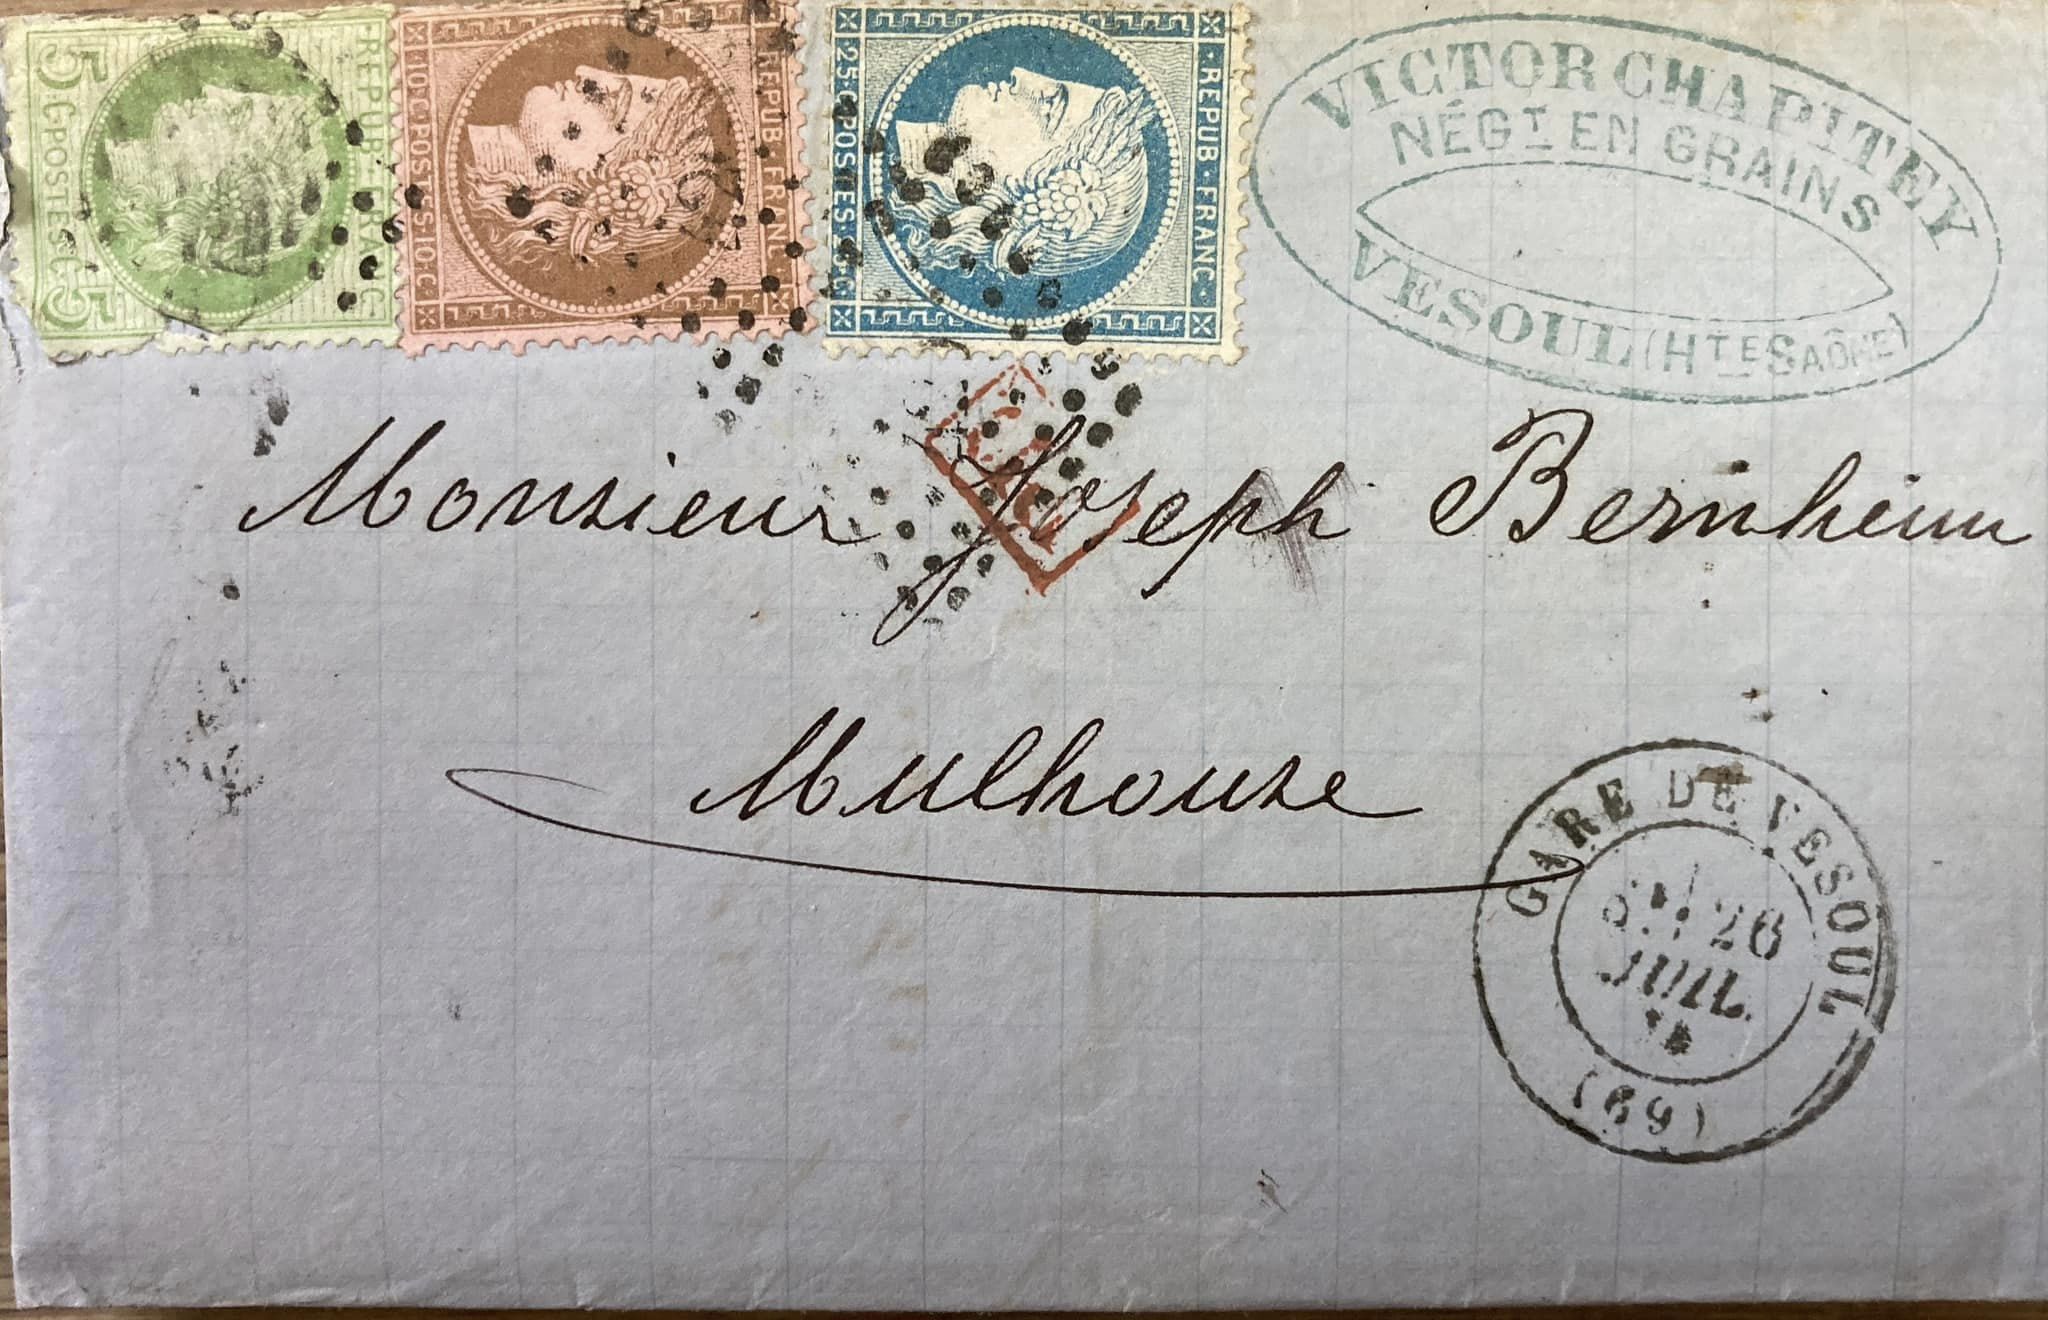 5 C·POSTES·C 5
REPUB·FRANC
·10·C·POSTES·10·C·
·REPUB·FRANC·
·25·C·POSTES·25·C·
·REPUB·FRANC·
VICTOR CHAPITEY
NÉGT EN GRAINS
VESOUL (HTE SAÔNE)
P.D.
Monsieur Joseph Bernheim
Mulhouse
GARE DE VESOUL
26
JUIL.
(69)